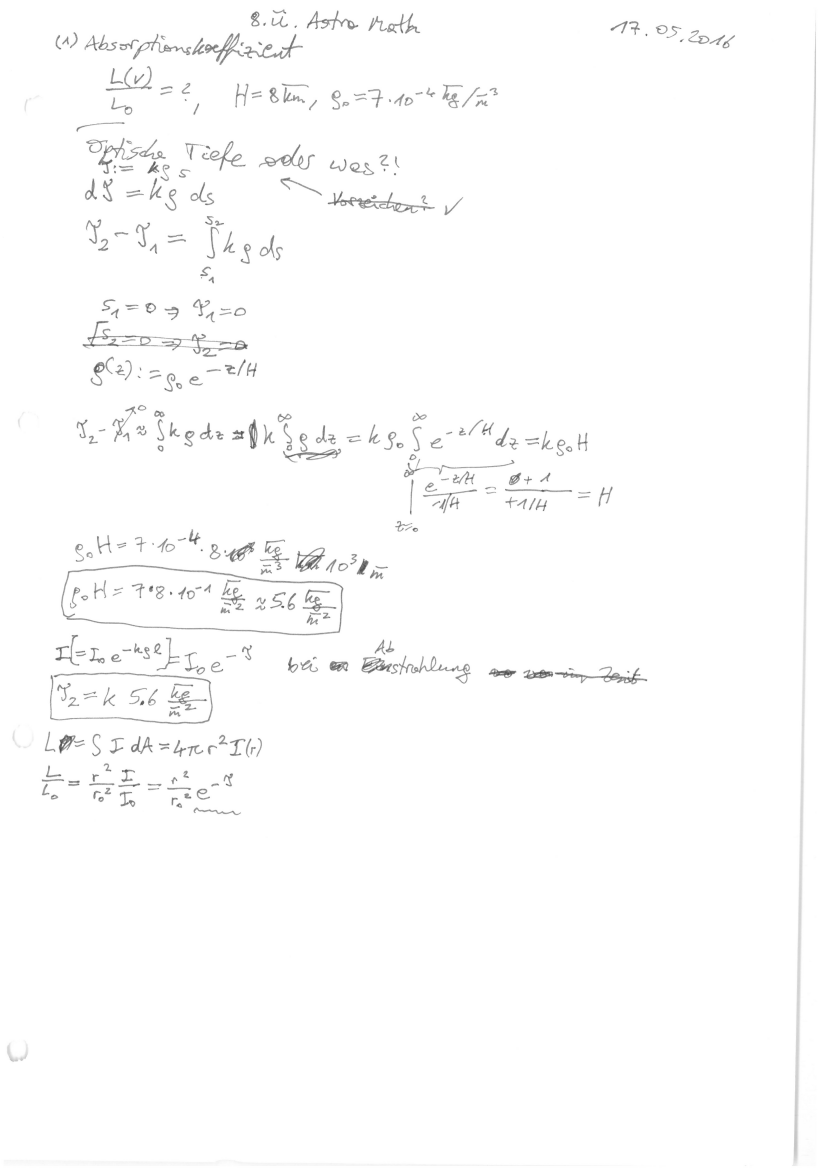 8. Ü. Astro Math
17.05.2016
(1) Absorptionskoeffizient
L(ν)/L₀ = ?, H = 8 km, ρ₀ = 7·10⁻⁴ kg/m³
Optische Tiefe oder was?!
τ := kρs
dτ = kρ ds
Vorzeichen? ✓
τ₂ − τ₁ = ∫_{s₁}^{s₂} kρ ds
s₁ = 0 ⇒ τ₁ = 0
s₂ = 0 ⇒ τ₂ = 0
ρ(z) := ρ₀ e^{−z/H}
τ₂ − τ₁ ≈ ∫₀^∞ kρ dz = k ∫₀^∞ ρ dz = kρ₀ ∫₀^∞ e^{−z/H} dz = kρ₀H
|_{z=0}^∞ e^{−z/H}/−1/H = 0+1/+1/H = H
ρ₀H = 7·10⁻⁴·8· kg/m³ 10³ m
ρ₀H = 7·8·10⁻¹ kg/m² ≈ 5.6 kg/m²
I[=I₀e^{−kρl}] = I₀e^{−τ} bei Abstrahlung
τ₂ = k 5.6 kg/m²
L = ∫ I dA = 4πr² I(r)
L/L₀ = r²/r₀² I/I₀ = r²/r₀² e^{−τ}